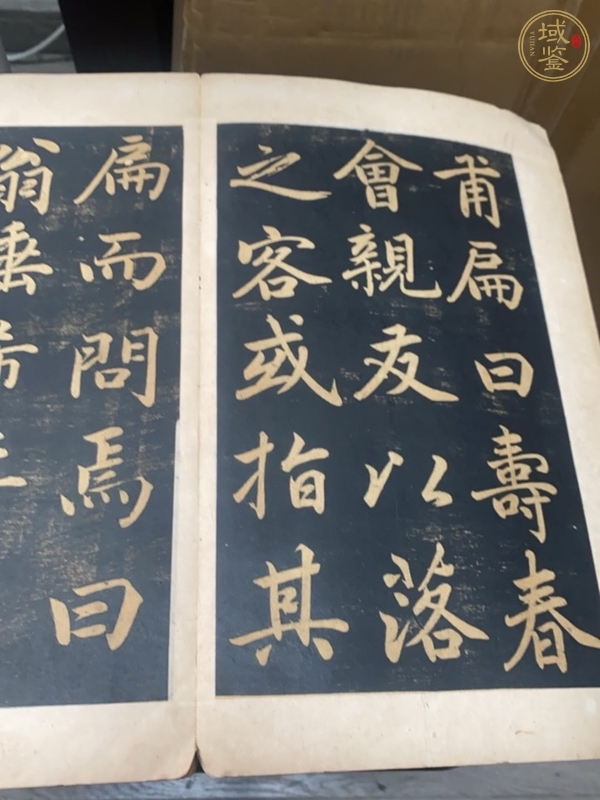 甫扁曰壽春
會親友以落
之客或指其
扁而問焉曰
翁垂希年
域鉴
YUJIAN